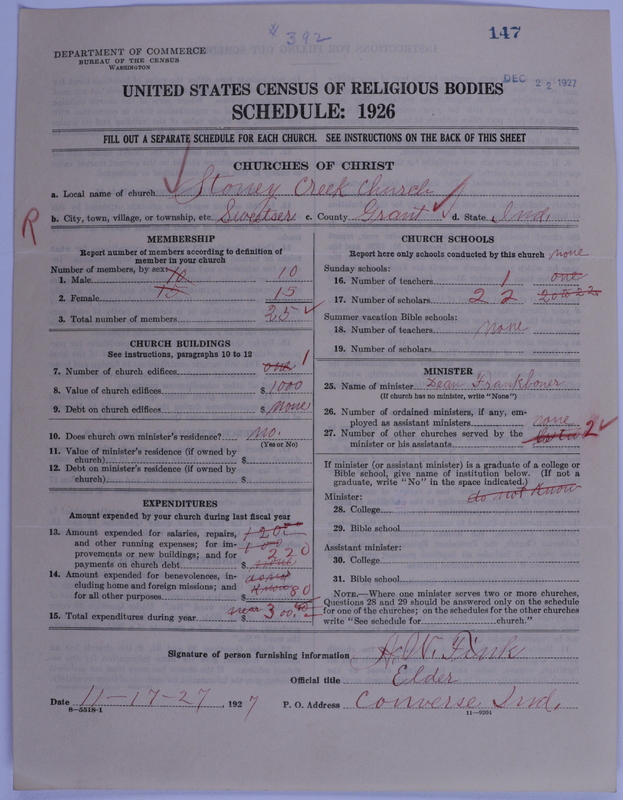 # 392
147
DEPARTMENT OF COMMERCE
BUREAU OF THE CENSUS
WASHINGTON
DEC 22 1927
UNITED STATES CENSUS OF RELIGIOUS BODIES
SCHEDULE: 1926
FILL OUT A SEPARATE SCHEDULE FOR EACH CHURCH. SEE INSTRUCTIONS ON THE BACK OF THIS SHEET
CHURCHES OF CHRIST
a. Local name of church Stoney Creek Church
R b. City, town, village, or township, etc. Sweetser c. County Grant d. State Ind.
MEMBERSHIP
Report number of members according to definition of
member in your church
Number of members, by sex:
1. Male 10 10
2. Female 15 15
3. Total number of members 25
CHURCH BUILDINGS
See instructions, paragraphs 10 to 12
7. Number of church edifices one 1
8. Value of church edifices $ 1000
9. Debt on church edifices $ none
10. Does church own minister's residence? no.
(Yes or No)
11. Value of minister's residence (if owned by
church) $
12. Debt on minister's residence (if owned by
church) $
EXPENDITURES
Amount expended by your church during last fiscal year
13. Amount expended for salaries, repairs,
and other running expenses; for im-
provements or new buildings; and for
payments on church debt $ 220
14. Amount expended for benevolences, in-
cluding home and foreign missions; and
for all other purposes 80
15. Total expenditures during year near $ 300.00
CHURCH SCHOOLS
Report here only schools conducted by this church none
Sunday schools:
16. Number of teachers 1 one
17. Number of scholars 22 20 to 22
Summer vacation Bible schools:
18. Number of teachers none
19. Number of scholars
MINISTER
25. Name of minister Dean Frankboner
(If church has no minister, write "None")
26. Number of ordained ministers, if any, em-
ployed as assistant ministers none
27. Number of other churches served by the
minister or his assistants 2
If minister (or assistant minister) is a graduate of a college or
Bible school, give name of institution below. (If not a
graduate, write "No" in the space indicated.)
Minister: do not know
28. College
29. Bible school
Assistant minister:
30. College
31. Bible school
NOTE.—Where one minister serves two or more churches,
Questions 28 and 29 should be answered only on the schedule
for one of the churches; on the schedules for the other churches
write "See schedule for church."
Signature of person furnishing information A. W. Fink
Official title Elder
Date 11-17-27, 1927 P. O. Address Converse Ind.
8—5518-1 11—9204